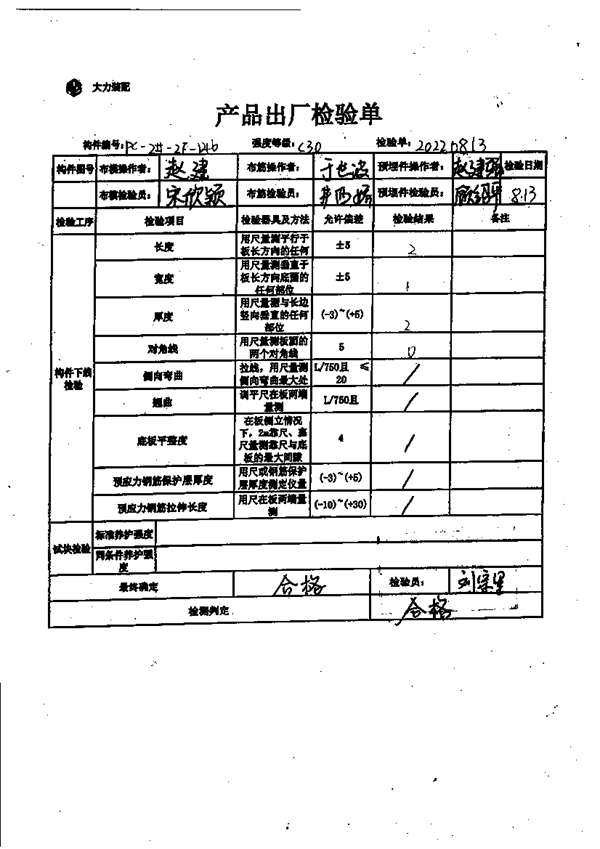 大力装配
产品出厂检验单
构件编号: 强度等级: C30 检验单: 20220813
构件图号 布模操作者: 赵建 布筋操作者: 预埋件操作者: 赵建 检验日期
布模检验员: 宋欣颖 布筋检验员: 预埋件检验员: 8.13
检验工序 检验项目 检验器具及方法 允许偏差 检验结果 备注
构件下线检验
长度 用尺量测平行于板长方向的任何 ±5 2
宽度 用尺量测垂直于板长方向底面的任何部位 ±5 1
厚度 用尺量测与长边竖向垂直的任何部位 (-3)~(+5) 2
对角线 用尺量测板面的两个对角线 5 0
侧向弯曲 拉线，用尺量测侧向弯曲最大处 L/750且 ≤20 /
翘曲 调平尺在板两端量测 L/750且 /
底板平整度 在板侧立情况下，2m靠尺、塞尺量测靠尺与底板的最大间隙 4 /
预应力钢筋保护层厚度 用尺或钢筋保护层厚度测定仪量 (-3)~(+5) /
预应力钢筋拉伸长度 用尺在板两端量测 (-10)~(+30) /
试块检验 标准养护强度
同条件养护强度
最终确定 合格 检验员:
检测判定 合格